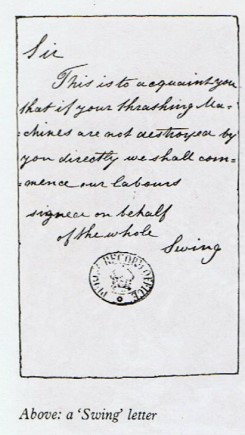 Sir
This is to acquaint you
that if your thrashing Ma-
-chines are not destroyed by
you directly we shall com-
-mence our labours
signed on behalf
of the whole
Swing
PUBLIC RECORD OFFICE
Above: a 'Swing' letter